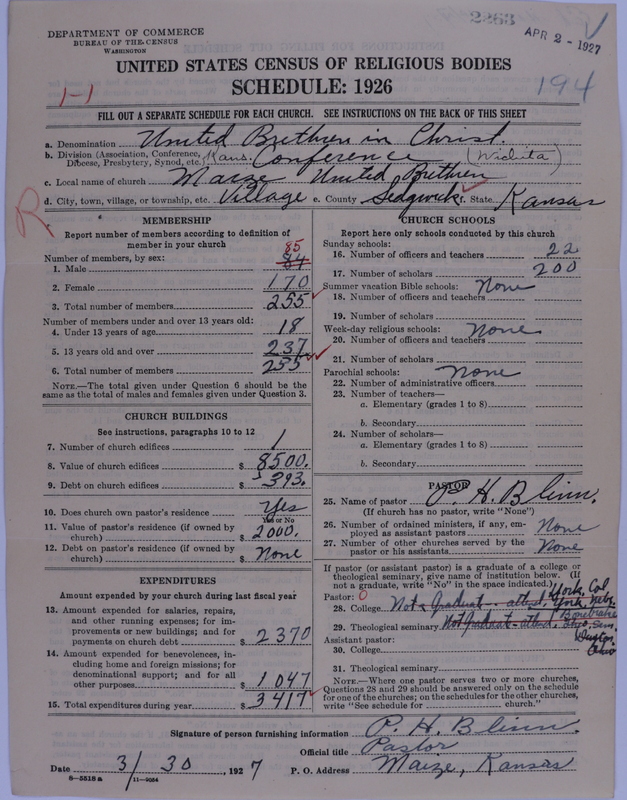 2863
APR 2 - 1927
DEPARTMENT OF COMMERCE
BUREAU OF THE CENSUS
WASHINGTON
UNITED STATES CENSUS OF RELIGIOUS BODIES
SCHEDULE: 1926
1-1
194
FILL OUT A SEPARATE SCHEDULE FOR EACH CHURCH. SEE INSTRUCTIONS ON THE BACK OF THIS SHEET
a. Denomination United Brethren in Christ.
b. Division (Association, Conference, Diocese, Presbytery, Synod, etc.) Kans. Conference (Wichita)
c. Local name of church Maize United Brethren
d. City, town, village, or township, etc. Village e. County Sedgwick f. State Kansas
R
MEMBERSHIP
Report number of members according to definition of
member in your church
Number of members, by sex:
85
1. Male 84
2. Female 170
3. Total number of members 255
Number of members under and over 13 years old:
4. Under 13 years of age 18
5. 13 years old and over 237
6. Total number of members 255
NOTE.—The total given under Question 6 should be
same as the total of males and females given under Question 3.
CHURCH BUILDINGS
See instructions, paragraphs 10 to 12
7. Number of church edifices 1
8. Value of church edifices $8500.
9. Debt on church edifices $393.
10. Does church own pastor's residence Yes
Yes or No
11. Value of pastor's residence (if owned by
church) $2000.
12. Debt on pastor's residence (if owned by
church) $None
EXPENDITURES
Amount expended by your church during last fiscal year
13. Amount expended for salaries, repairs,
and other running expenses; for im-
provements or new buildings; and for
payments on church debt $2370
14. Amount expended for benevolences, in-
cluding home and foreign missions; for
denominational support; and for all
other purposes $1047
15. Total expenditures during year $3417
CHURCH SCHOOLS
Report here only schools conducted by this church
Sunday schools:
16. Number of officers and teachers 22
17. Number of scholars 200
Summer vacation Bible schools: None
18. Number of officers and teachers
19. Number of scholars
Week-day religious schools: None
20. Number of officers and teachers
21. Number of scholars
Parochial schools: None
22. Number of administrative officers
23. Number of teachers—
a. Elementary (grades 1 to 8)
b. Secondary
24. Number of scholars—
a. Elementary (grades 1 to 8)
b. Secondary
PASTOR
25. Name of pastor P H. Blinn.
(If church has no pastor, write "None")
26. Number of ordained ministers, if any, em-
ployed as assistant pastors None
27. Number of other churches served by the
pastor or his assistants None
If pastor (or assistant pastor) is a graduate of a college or
theological seminary, give name of institution below. (If
not a graduate, write "No" in the space indicated.)
Pastor: 0
28. College Not a Graduate - attend, York, Col York, Nebr.
29. Theological seminary Not Graduate - attend, Bonebrake Sem.
Dayton
Ohio
Assistant pastor:
30. College
31. Theological seminary
NOTE.—Where one pastor serves two or more churches,
Questions 28 and 29 should be answered only on the schedule
for one of the churches; on the schedules for the other churches,
write "See schedule for church."
Signature of person furnishing information P. H. Blinn.
Official title Pastor
Date 3/30, 1927 P. O. Address Maize, Kansas
8-5518 a 11-9034